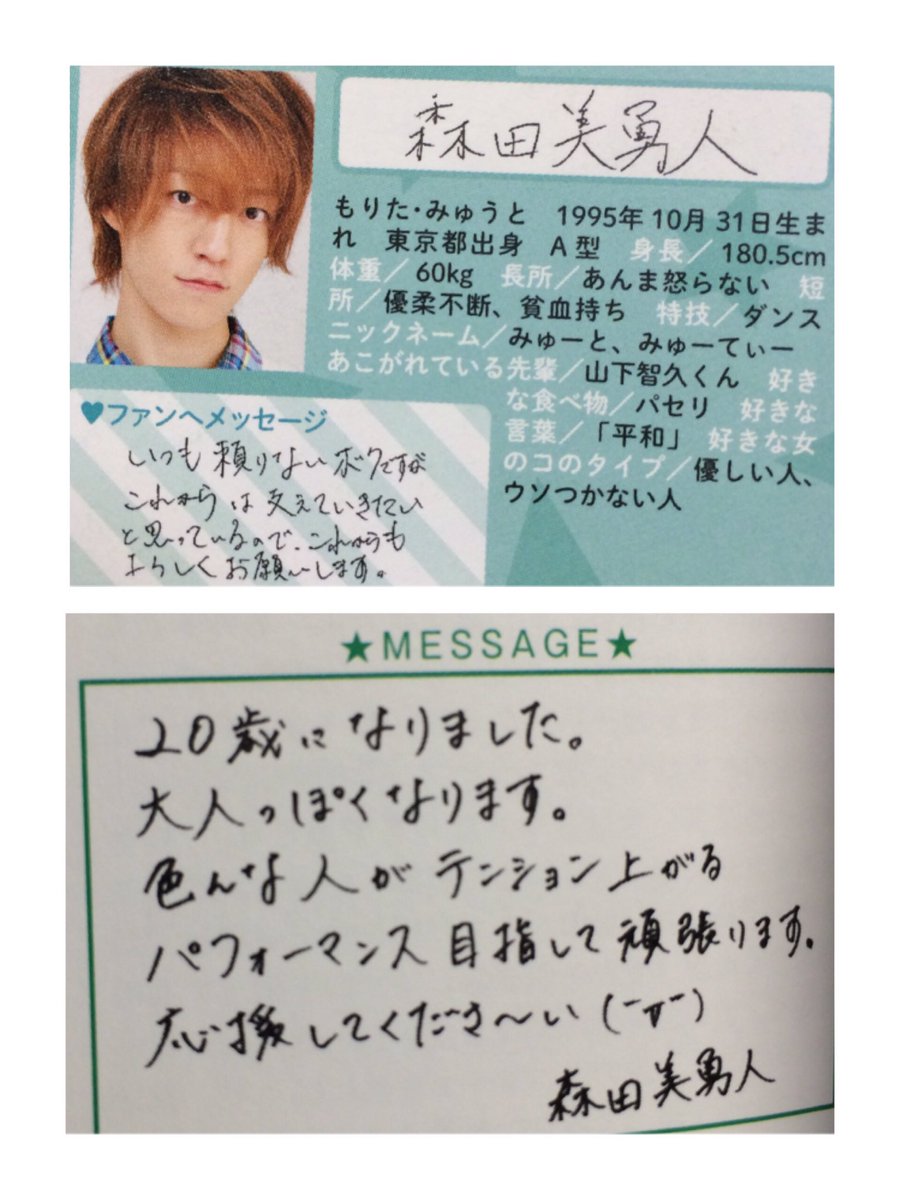 森田美勇人
もりた・みゅうと　1995年 10月 31日生ま
れ　東京都出身　A型　身長／180.5cm
体重／60kg　長所／あんま怒らない　短
所／優柔不断、貧血持ち　特技／ダンス
ニックネーム／みゅーと、みゅーてぃー
あこがれている先輩／山下智久くん　好き
な食べ物／パセリ　好きな
言葉／「平和」　好きな女
のコのタイプ／優しい人、
ウソつかない人
♥ファンへメッセージ
いつも頼りないボクですが
これからは支えていきたい
と思っているので、これからも
よろしくお願いします。
★MESSAGE★
20歳になりました。
大人っぽくなります。
色んな人がテンション上がる
パフォーマンス目指して頑張ります。
応援してくださ〜い(ˉ▽ˉ)
森田美勇人